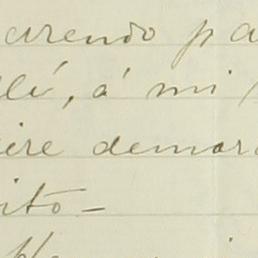 arendo pa
llí, á mi
eire demor
ito-